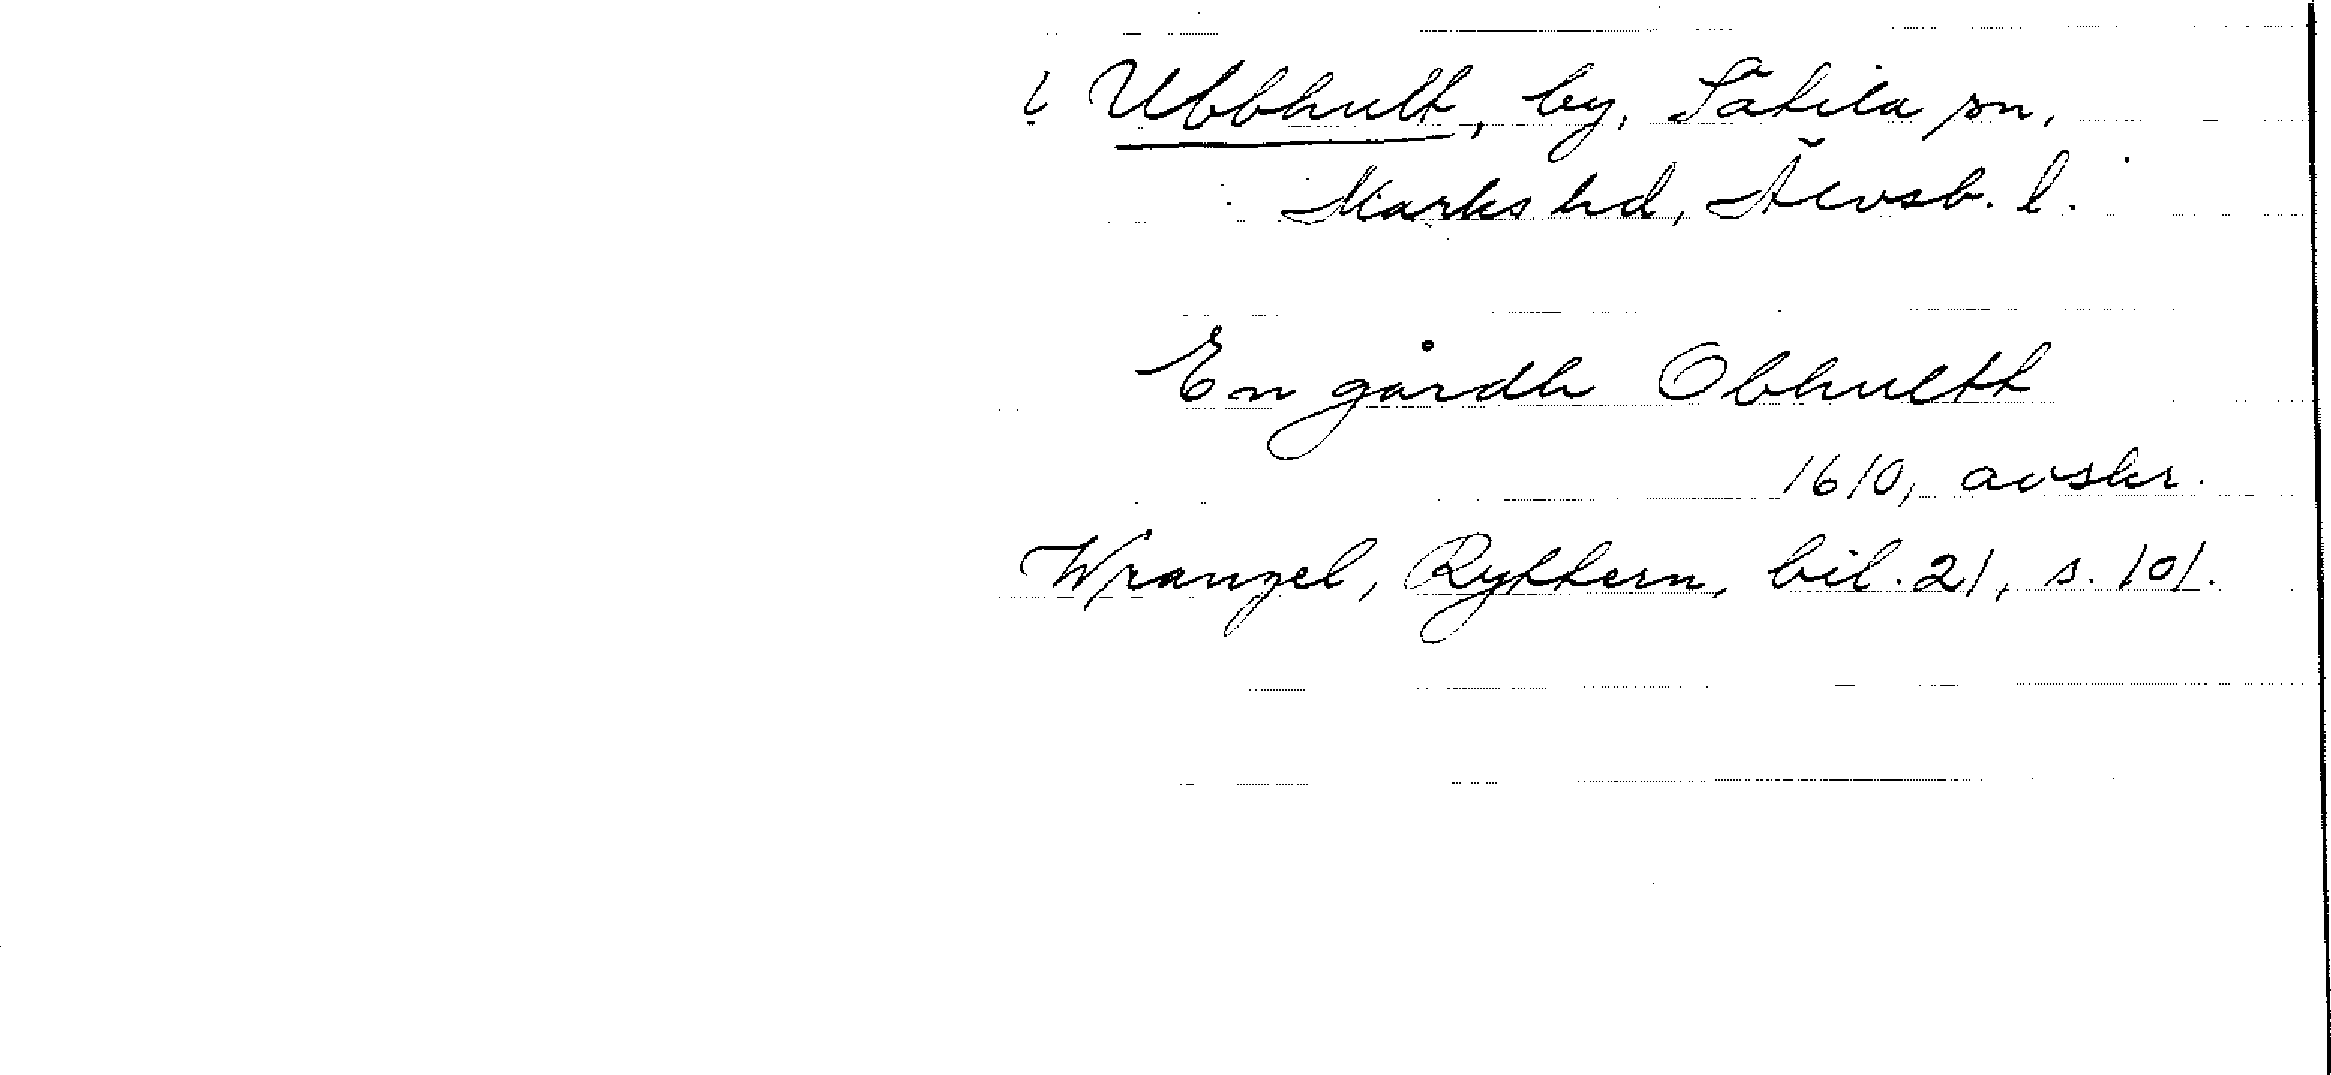 i Ubbhult, by, Sätila sn,
Marks hd, Älvsb. l.
En gårdh Obhultt
1610, avskr.
Wrangel, Ryttern, bil. 21, s. 101.